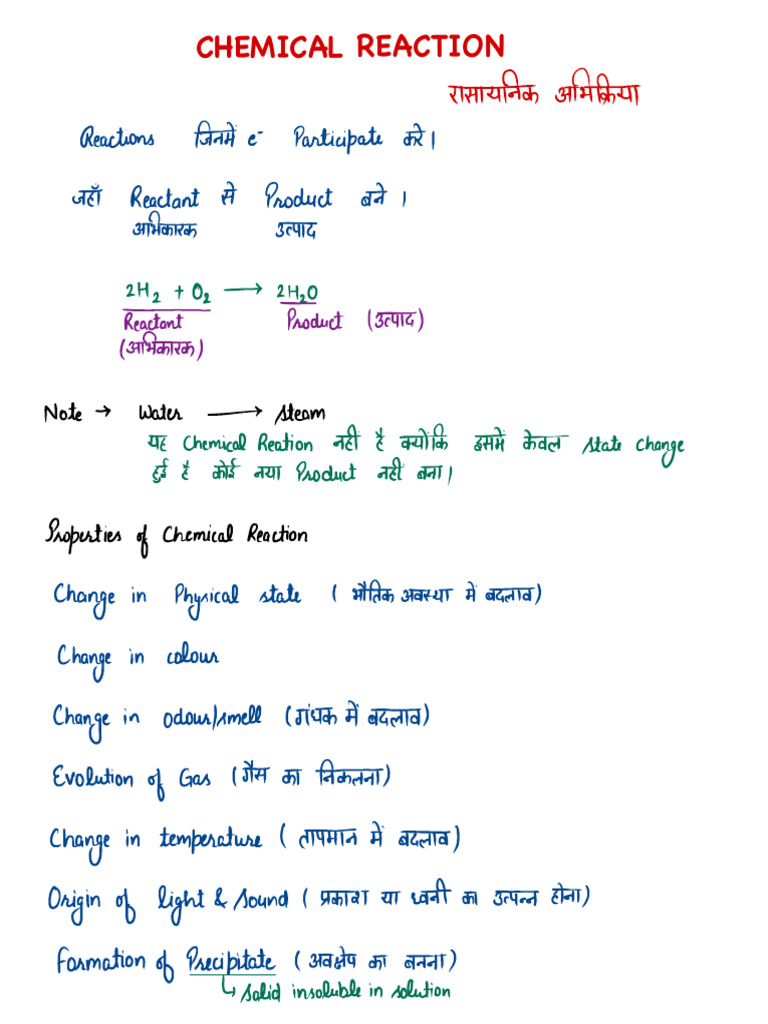 CHEMICAL REACTION
रासायनिक अभिक्रिया
Reactions जिनमें e⁻ Participate करे।
जहाँ Reactant से Product बने ।
अभिकारक उत्पाद
2H₂ + O₂ ⟶ 2H₂O
Reactant Product (उत्पाद)
(अभिकारक)
Note → Water ⟶ Steam
यह Chemical Reation नहीं है क्योंकि इसमें केवल state change
हुई है कोई नया Product नहीं बना।
Properties of Chemical Reaction
Change in Physical state ( भौतिक अवस्था में बदलाव)
Change in colour
Change in odour/smell (गंधक में बदलाव)
Evolution of Gas (गैस का निकलना)
Change in temperature ( तापमान में बदलाव)
Origin of light & Sound ( प्रकाश या ध्वनी का उत्पन्न होना)
Formation of Precipitate (अवक्षेप का बनना)
↳ Solid insoluble in solution